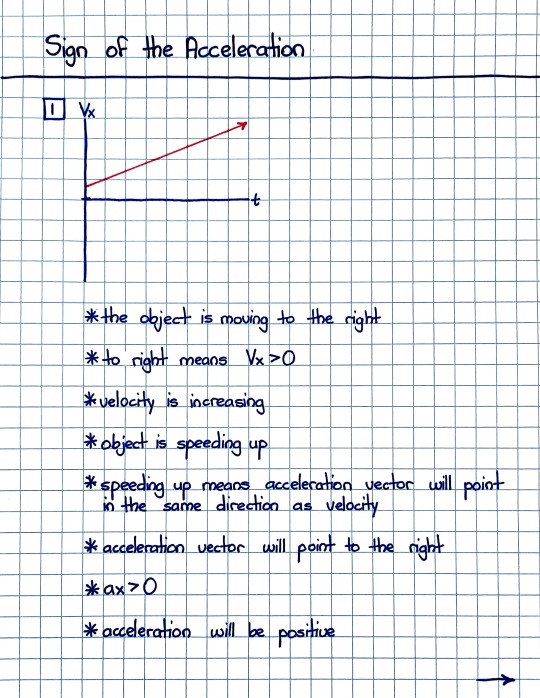 Sign of the Acceleration
1 Vx
t
*the object is moving to the right
*to right means Vx>0
*velocity is increasing
*object is speeding up
*speeding up means acceleration vector will point
in the same direction as velocity
*acceleration vector will point to the right
*ax>0
*acceleration will be positive